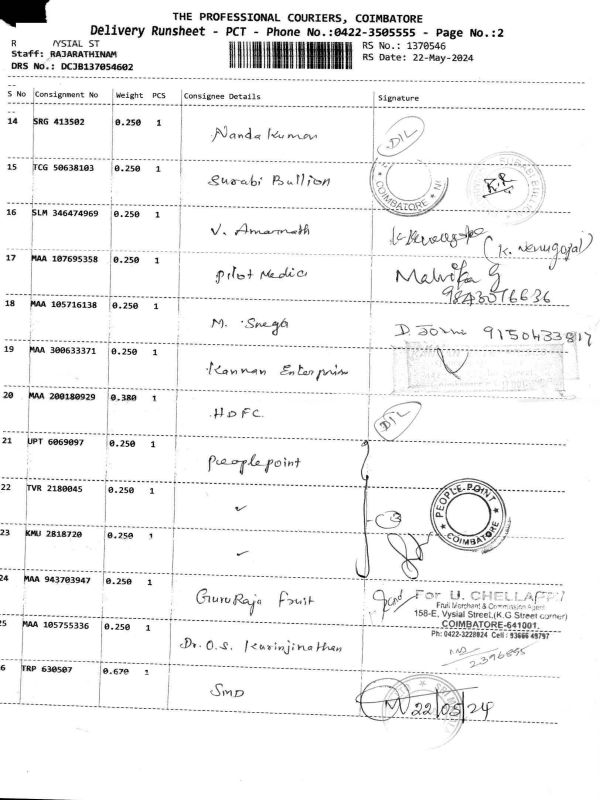 THE PROFESSIONAL COURIERS, COIMBATORE
Delivery Runsheet - PCT - Phone No.:0422-3505555 - Page No.:2
R YSIAL ST RS No.: 1370546
Staff: RAJARATHINAM RS Date: 22-May-2024
DRS No.: DCJB137054602
S No Consignment No Weight PCS Consignee Details Signature
14 SRG 413502 0.250 1
Nanda Kumar DIL
15 TCG 50638103 0.250 1
Surabi Bullion COIMBATORE R.R
16 SLM 346474969 0.250 1
V. Amarnath (K. Venugopal)
17 MAA 107695358 0.250 1
Pilot Medica Malvika G
9843076636
18 MAA 105716138 0.250 1
M. Snega D. 9150433817
19 MAA 300633371 0.250 1
Kannan Enterprim
20 MAA 200180929 0.380 1
HDFC DIL
21 UPT 6069097 0.250 1
Peoplepoint
22 TVR 2180045 0.250 1
✓ -3 PEOPLE POINT
COIMBATORE
23 KMU 2818720 0.250 1
✓
24 MAA 943703947 0.250 1
GuruRaja Fruit For U. CHELLAPPI
Fruit Merchant & Commission Agent
158-E, Vysial Street,(K.G Street corner)
25 MAA 105755336 0.250 1 COIMBATORE-641001.
Ph: 0422-3228024 Cell: 93666 49797
Dr. O.S. Kurinjinathan
2396855
26 TRP 630507 0.670 1
SMD 22/05/24